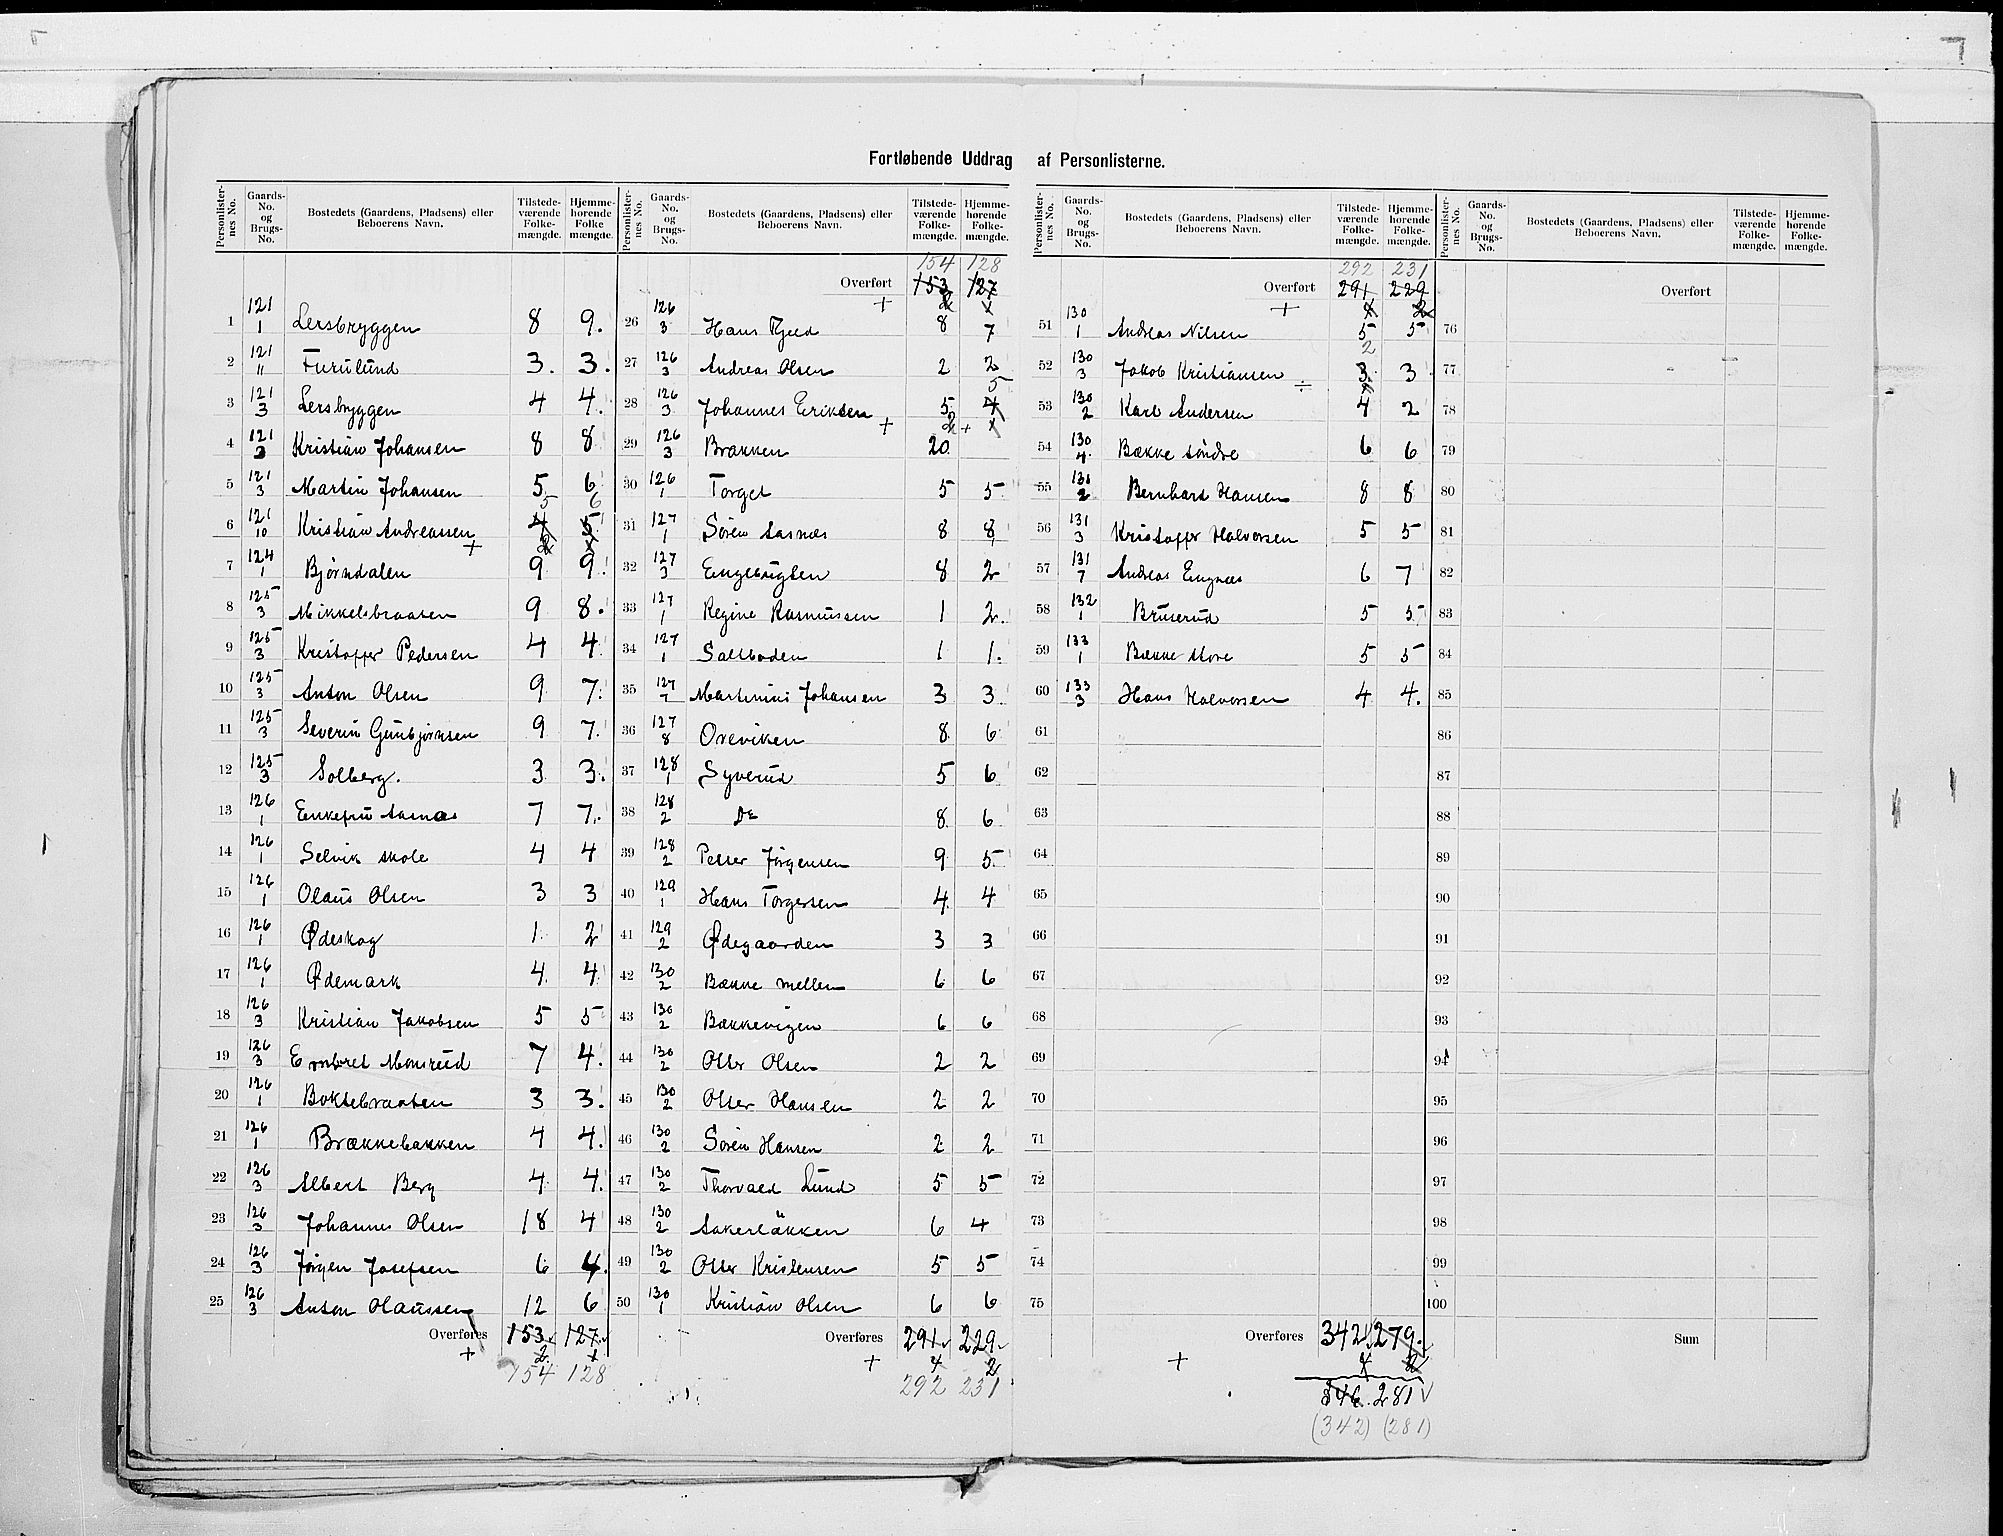 Fortløbende Uddrag af Personlisterne.
Personlisternes No. Gaards-No. og Brugs-No. Bostedets (Gaardens, Pladsens) eller Beboerens Navn. Tilstedeværende Folkemængde. Hjemmehørende Folkemængde.
1 121/1 Lersbryggen 8 9.
2 121/11 Furulund 3. 3.
3 121/3 Lersbryggen 4 4.
4 121/3 Kristian Johansen 8 8
5 121/3 Martin Johansen 5 6
6 121/10 Kristian Andreassen + 4 5 5 6
7 124/1 Bjørndalen 9 9.
8 125/3 Mikkelsbraaten 9 8.
9 125/3 Kristoffer Pedersen 4 4
10 125/3 Anton Olsen 9 7.
11 125/3 Severin Gunbjørnsen 9 7.
12 125/3 Solberg. 3 3.
13 126/1 Enkefru Aasnæs 7 7.
14 126/1 Selvik skole 4 4
15 126/1 Olaus Olsen 3 3
16 126/1 Ødeskog 1 2
17 126/1 Ødemark 4 4
18 126/3 Kristian Jakobsen 5 5
19 126/3 Embret Monsrud 7 4.
20 126/1 Boksebraaten 3 3.
21 126/1 Brækkebakken 4 4.
22 126/3 Albert Berg 4 4.
23 126/3 Johannes Olsen 18 4
24 126/3 Jørgen Josefsen 6 4.
25 126/3 Anton Olaussen 12 6
Overføres 153 127
+ 2 1
154 128
Personlisternes No. Gaards-No. og Brugs-No. Bostedets (Gaardens, Pladsens) eller Beboerens Navn. Tilstedeværende Folkemængde. Hjemmehørende Folkemængde.
154 128
Overført 153 127
+
26 126/3 Hans Kjeld 8 7
27 126/3 Andreas Olsen 2 2
28 126/3 Johannes Eriksen + 5 4 5
29 126/3 Brækken 20
30 126/1 Torget 5 5
31 127/1 Sören Aasnæs 8 8
32 127/3 Engebrigtsen 8 2
33 127/1 Regine Rasmussen 1 2.
34 127/1 Saltboden 1 1.
35 127/7 Martinius Johansen 3 3
36 127/8 Oreviken 8 6
37 128/1 Syverud 5 6
38 128/2 Do 8 6
39 128/2 Petter Jörgensen 9 5
40 129/1 Hans Torgersen 4 4
41 129/2 Ødegaarden 3 3
42 130/2 Bække mellem 6 6
43 130/2 Bækkevigen 6 6
44 130/2 Otter Olsen 2 2
45 130/2 Otter Hansen 2 2
46 130/2 Sörin Hansen 2 2
47 130/2 Thorvald Lund 5 5
48 130/2 Aakerlökken 6 4
49 130/2 Otter Kristensen 5 5
50 130/1 Kristian Olsen 6 6
Overføres 291 229
+ 4 2
292 231
Personlisternes No. Gaards-No. og Brugs-No. Bostedets (Gaardens, Pladsens) eller Beboerens Navn. Tilstedeværende Folkemængde. Hjemmehørende Folkemængde.
292 231
Overført 291 229
+ 4 2
51 130/1 Andreas Nilsen 5 5
52 130/3 Jakob Kristiansen ÷ 3 2 3
53 130/2 Karl Andersen 4 2
54 130/4 Bække söndre 6 6
55 131/2 Bernhard Hansen 8 8
56 131/3 Kristoffer Halvorsen 5 5
57 131/7 Andreas Engnæs 6 7
58 132/1 Bruserud 5 5
59 133/1 Bække store 5 5
60 133/3 Hans Halvorsen 4 4.
61
62
63
64
65
66
67
68
69
70
71
72
73
74
75
Overføres 342 279
+ 4 2
346. 281
(342) (281)
Personlisternes No. Gaards-No. og Brugs-No. Bostedets (Gaardens, Pladsens) eller Beboerens Navn. Tilstedeværende Folkemængde. Hjemmehørende Folkemængde.
Overført
76
77
78
79
80
81
82
83
84
85
86
87
88
89
90
91
92
93
94
95
96
97
98
99
100
Sum